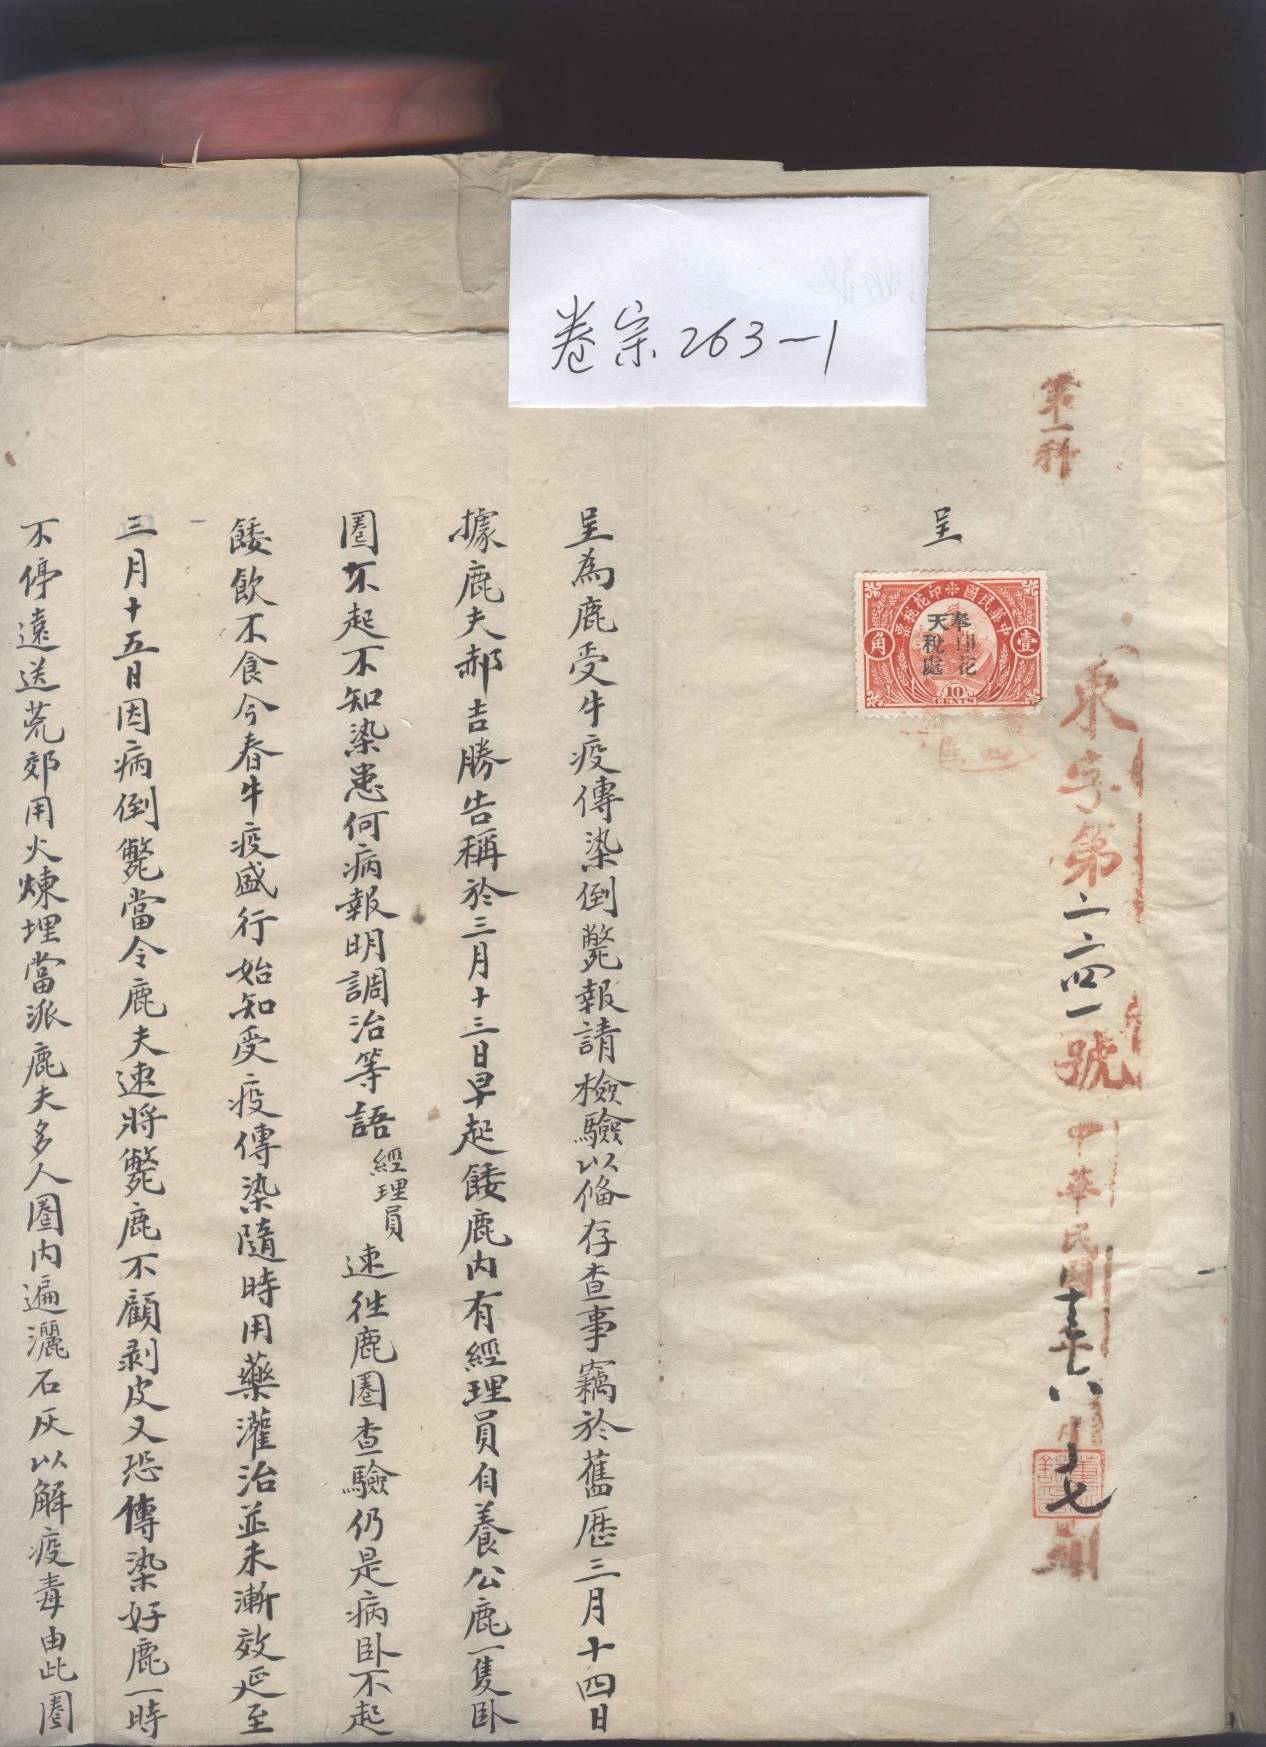 卷宗263-1
第一科
東字第二二四一號中華民國
呈
中華民國印花稅票
奉天印花稅處
壹角
10
CENTS
呈為鹿受牛疫傳染倒斃報請檢驗以俻存查事竊於舊歷三月十四日
據鹿夫郝吉勝告稱於三月十三日早起餧鹿內有經理員自養公鹿一隻臥
圈不起不知染患何病報明調治等語經理員速徃鹿圈查驗仍是病臥不起
餧飲不食今春牛疫盛行始知受疫傳染隨時用藥灌治並未漸效延至
三月十五日因病倒斃當令鹿夫速將斃鹿不顧剥皮又恐傳染好鹿一時
不停遠送荒郊用火煉埋當派鹿夫多人圈內遍灑石灰以解疫毒由此圈